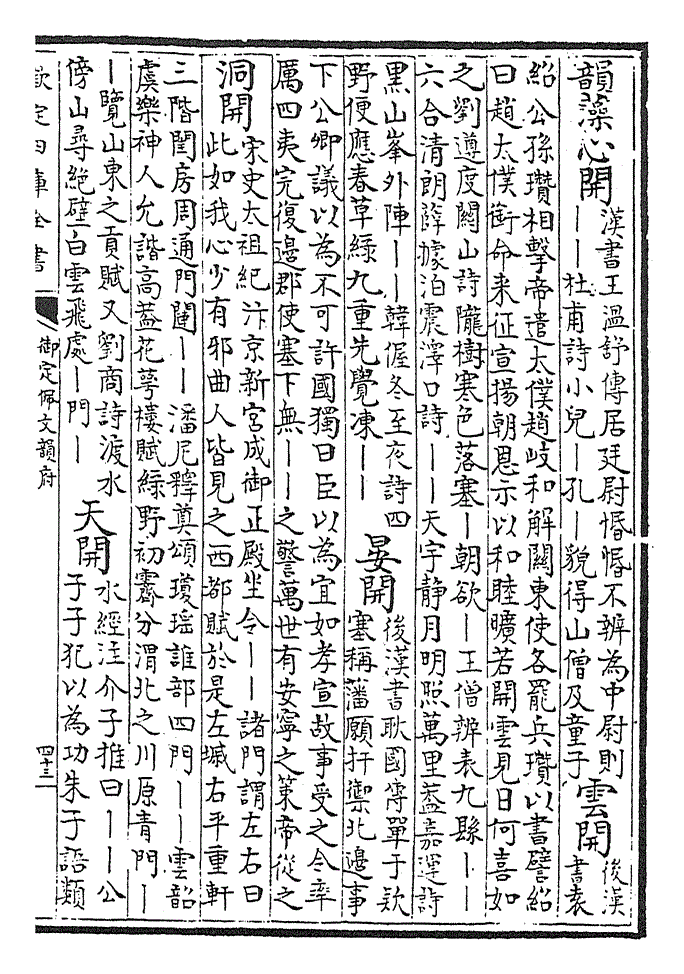 韻藻心開
漢書王溫舒傳居廷尉惛惛不辨為中尉則
——杜甫詩小兒—孔—貌得山僧及童子
雲開
後漢
書袁
紹公孫瓚相擊帝遣太僕趙岐和解關東使各罷兵瓚以書譬紹
曰趙太僕衘命来征宣揚朝恩示以和睦曠若開雲見日何喜如
之劉遵度關山詩隴樹寒色落塞—朝欲—王僧辨表九縣——
六合清朗薛據泊震澤口詩——天宇静月明照萬里葢嘉運詩
黒山峯外陣——韓偓冬至夜詩四
野便應春草綠九重先覺凍——
晏開
後漢書耿國傳單于欵
塞稱藩願扞禦北邉事
下公卿議以為不可許國獨曰臣以為宜如孝宣故事受之令率
厲四夷完復邉郡使塞下無——之警萬世有安寧之策帝從之
洞開
宋史太祖紀汴京新宮成御正殿坐令——諸門謂左右曰
此如我心少有邪曲人皆見之西都賦於是左墄右平重軒
三階閨房周通門闥——潘尼釋奠頌瓊瑶誰部四門——雲韶
虞樂神人允諧高葢花萼樓賦綠野初霽分渭北之川原青門—
—覽山東之貢賦又劉商詩渡水
傍山尋絶壁白雲飛處—門—
天開
水經注介子推曰——公
子子犯以為功朱子語類
欽定四庫全書
御定佩文韻府
四十三